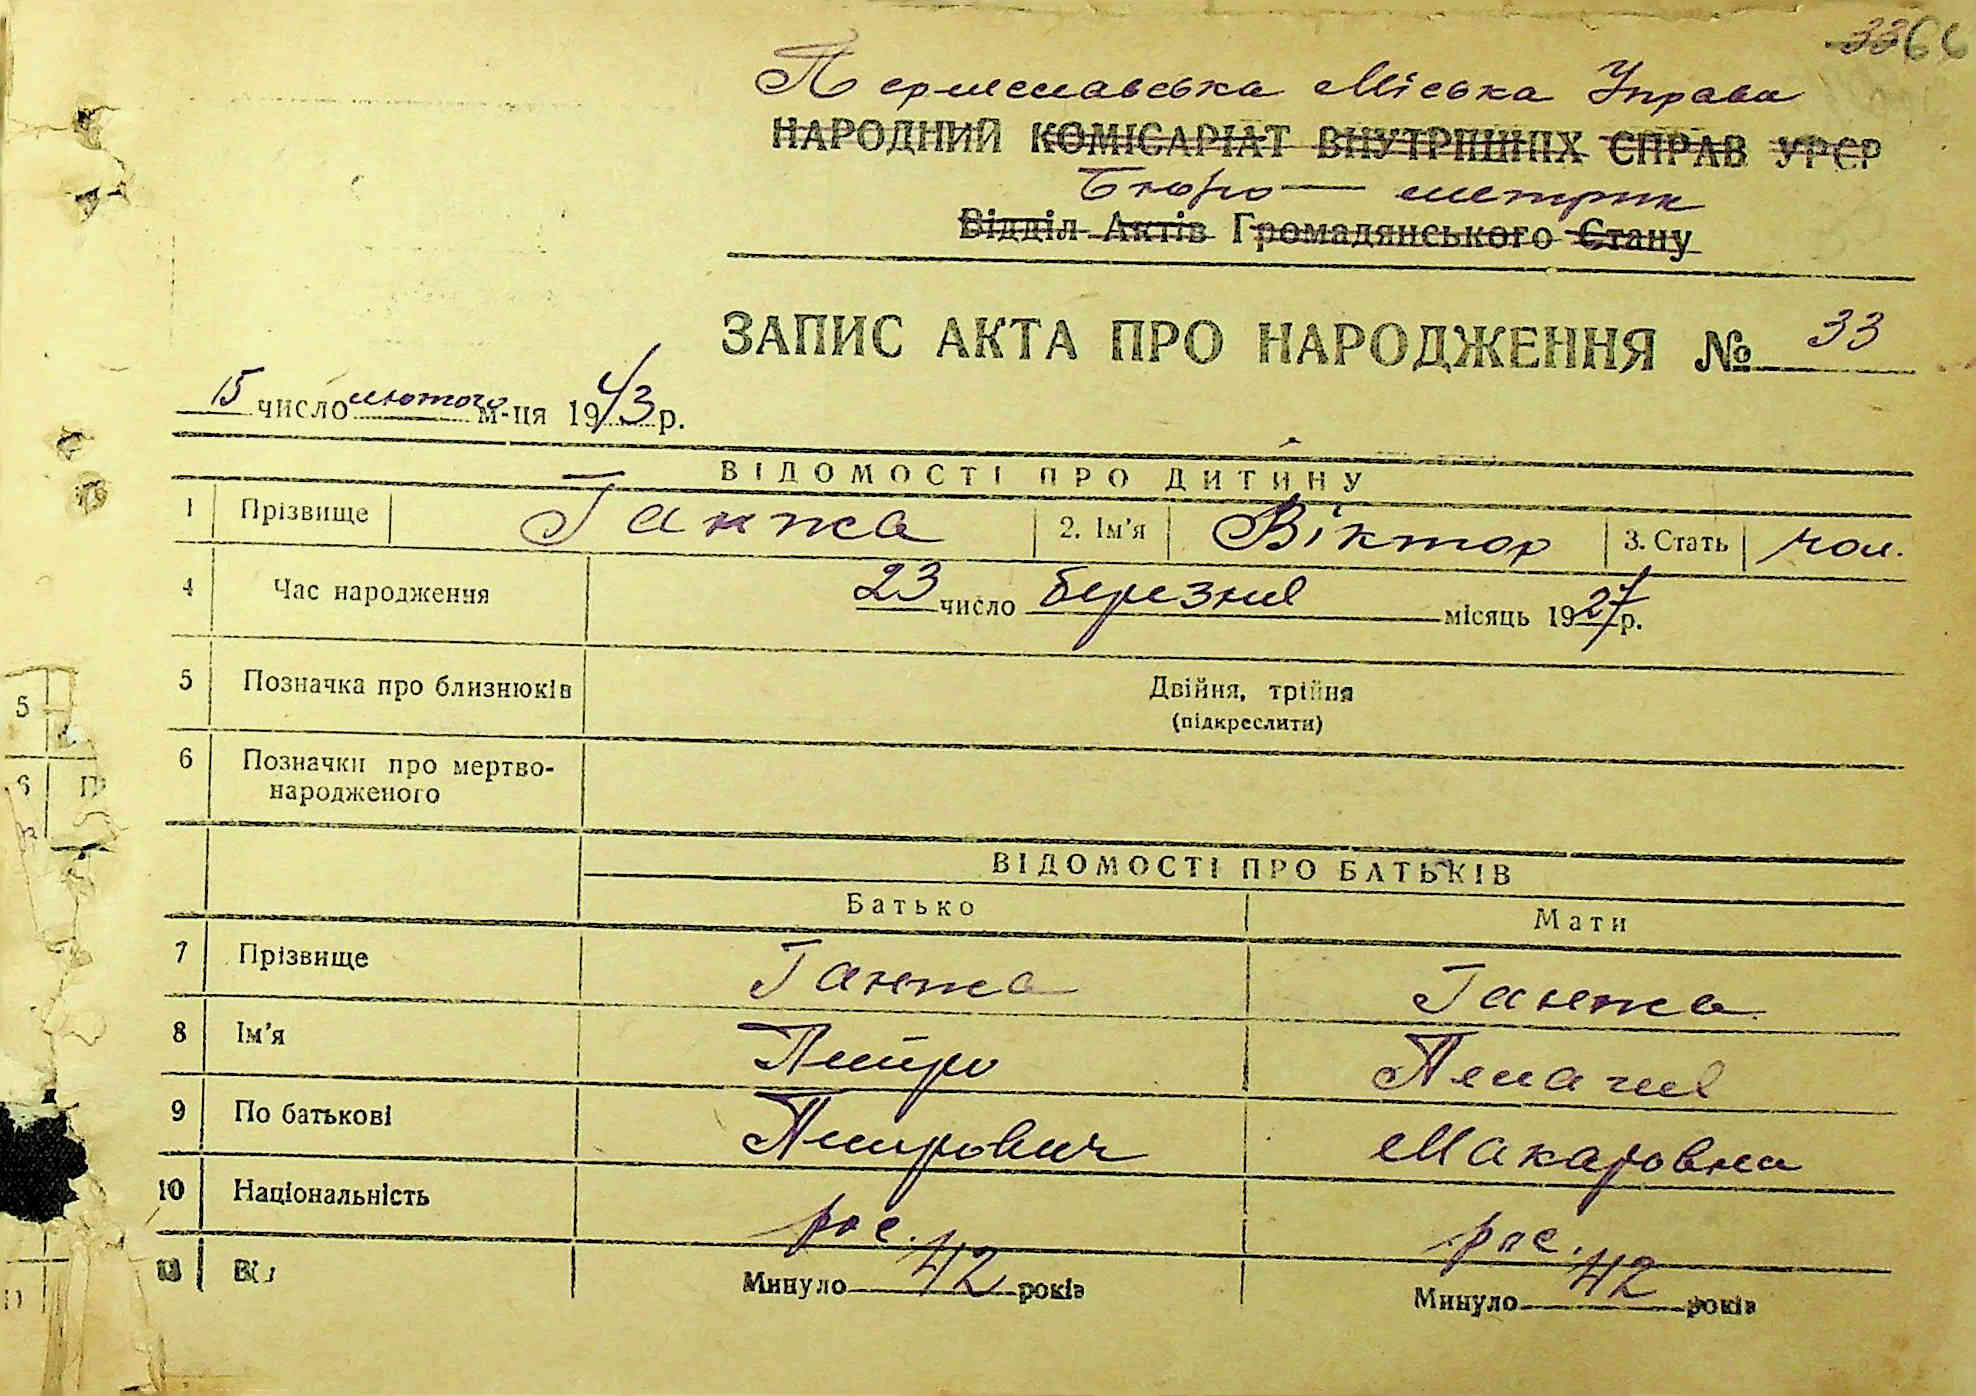 33 66
Міська Управа
НАРОДНИЙ КОМІСАРІАТ ВНУТРІШНІХ СПРАВ УРСР
Бюро — метрик
Відділ Актів Громадянського Стану
ЗАПИС АКТА ПРО НАРОДЖЕННЯ № 33
15 число лютого м-ця 1943 р.
ВІДОМОСТІ ПРО ДИТИНУ
1 Прізвище Ганжа 2. Ім'я Віктор 3. Стать чол.
4 Час народження 23 число березня місяць 1927 р.
5 Позначка про близнюків Двійня, трійня
(підкреслити)
6 Позначки про мертво-
народженого
ВІДОМОСТІ ПРО БАТЬКІВ
Батько Мати
7 Прізвище Ганжа Ганжа
8 Ім'я
9 По батькові Макаровна
10 Національність рос. рос.
11 Вік Минуло 42 років Минуло 42 років
5
6 П